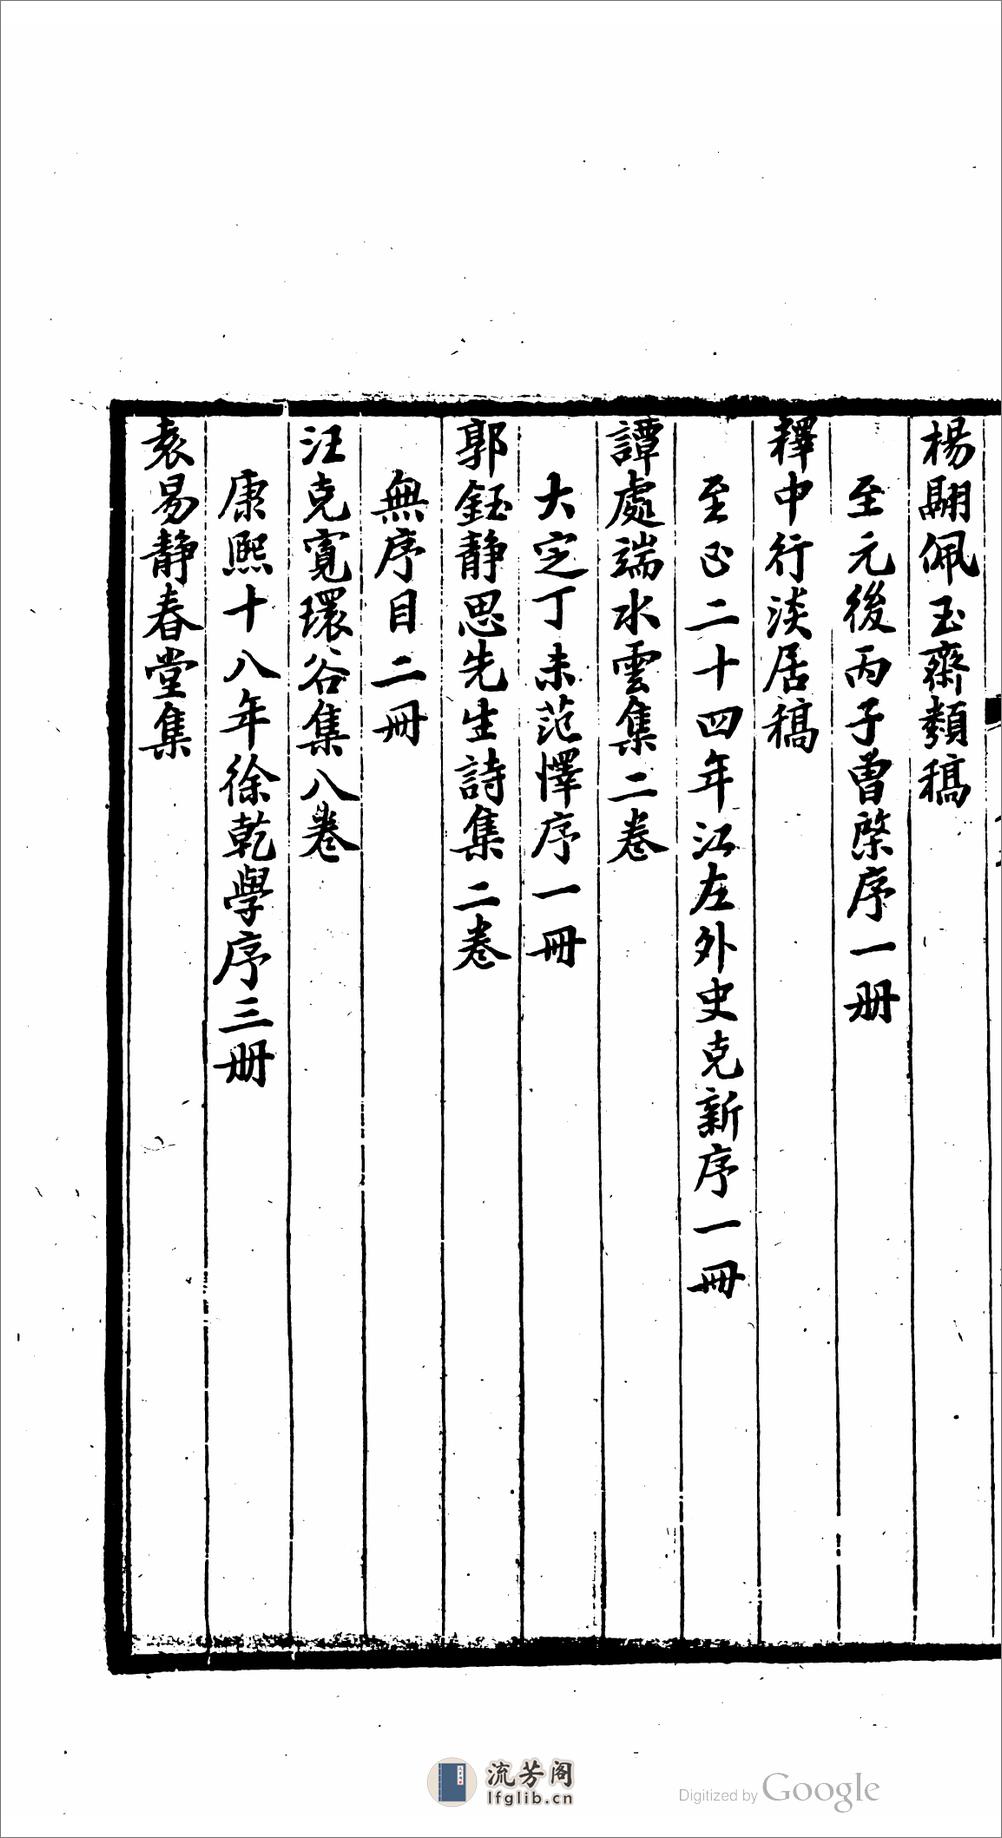 楊翮佩玉齋類稿
至元後丙子曾棨序一册
釋中行淡居稿
至正二十四年江左外史克新序一冊
譚處端水雲集二卷
大定丁未范懌序一冊
郭鈺靜思先生詩集二卷
無序目二冊
汪克寬環谷集八卷
康熙十八年徐乾學序三册
袁易靜春堂集
流芳阁
lfglib.cn
Digitized by Google